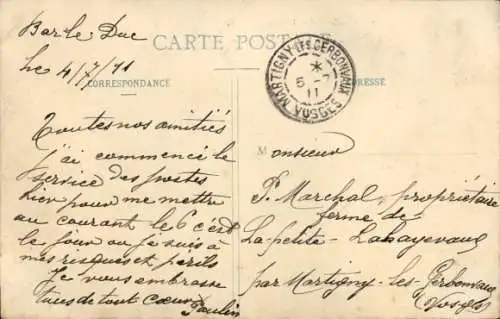 Bar-le-Duc
CARTE POSTALE
le 4/7/11
CORRESPONDANCE
ADRESSE
MARTIGNY-LES-GERBONVAUX
*
5 -7
11
VOSGES
Toutes nos amitiés
j'ai commencé le
service des postes
hier pour me mettre
au courant le 6 c'est
le jour ou je suis à
mes risques et perils
Je vous embrasse
tous de tout coeur
Paulin
Monsieur
P. Marchal, propriétaire
ferme de
La petite-Lahayevaux
par Martigny-les-Gerbonvaux
(Vosges)